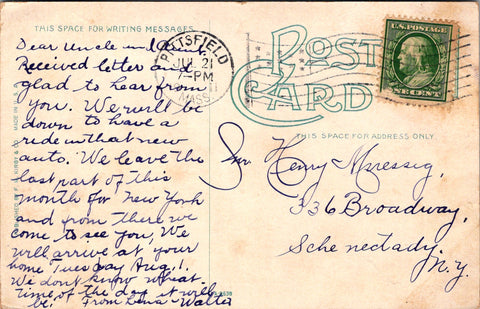 THIS SPACE FOR WRITING MESSAGES
Dear Uncle and Aunt.
Received letter and
glad to hear from
you. We will be
down to have a
ride in that new
auto. We leave the
last part of this
month for New York
and from there we
come to see you, We
will arrive at your
home Tuesday Aug. 1.
We dont know what
time of the day it will
be. From Lena Walter
PITTSFIELD
JUL 21
-PM
MASS.
POST
CARD
U.S. POSTAGE
ONE CENT
THIS SPACE FOR ADDRESS ONLY
Henry
336 Broadway,
Schenectady.
N.Y.